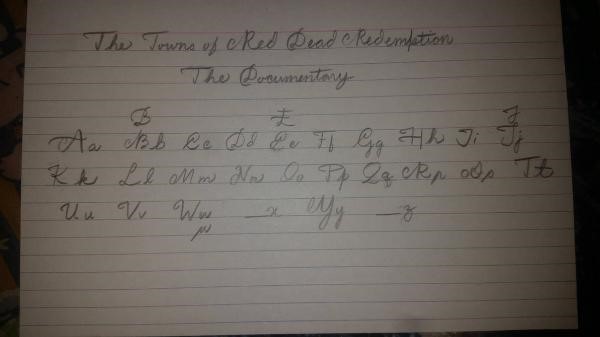 The Towns of Red Dead Redemption
The Documentary
B E J
Aa Bb Cc Dd Ee Ff Gg Hh Ii Jj
Kk Ll Mm Nn Oo Pp Qq Rr Ss Tt
Uu Vv Ww _x Yy _z